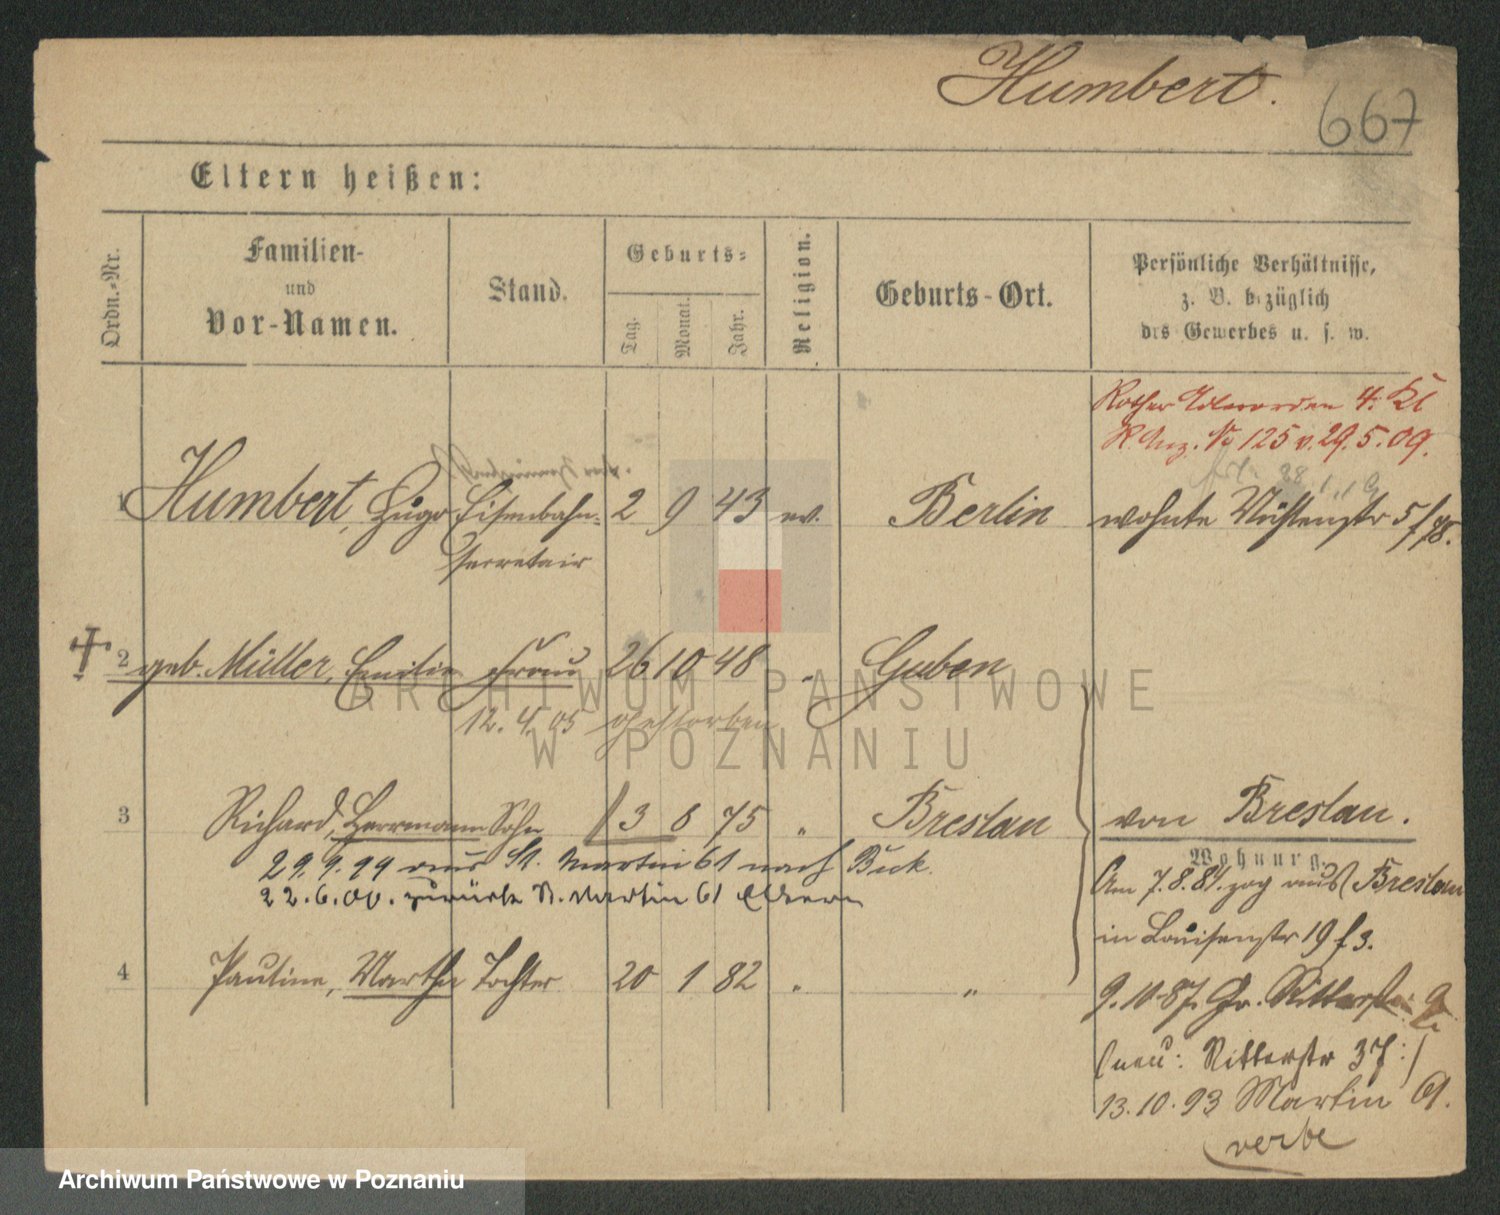 Humbert.
667
Eltern heißen:
Ordn.-Nr.
Familien-
und
Vor-Namen.
Stand.
Geburts-
Tag.
Monat.
Jahr.
Religion.
Geburts-Ort.
Persönliche Verhältnisse,
z. B. bezüglich
des Gewerbes u. s. w.
4. Kl
R. Anz. No 125 v. 29.5.09.
1 Humbert, Hugo Eisenbahn- 2 9 43 ev. Berlin wohnte
secretair
2 geb. Müller, Emilie Frau 26 10 48 " Guben
12.4.05 gestorben
3 Richard, Herrmann Sohn 3 6 75 " Breslau von Breslau.
29.9.99 aus St. Martin 61 nach Buk.
22.6.00. zurück St. Martin 61 Eltern
Wohnung.
Am 7.8.81. zog aus Breslau
in Louisenstr 19 f 3.
4 Pauline, Martha Tochter 20 1 82 " "
9.10.87. Gr. Ritterstr.
(neu: Ritterstr 37:)
13.10.93 Martin 61.
ARCHIWUM PAŃSTWOWE
W POZNANIU
Archiwum Państwowe w Poznaniu